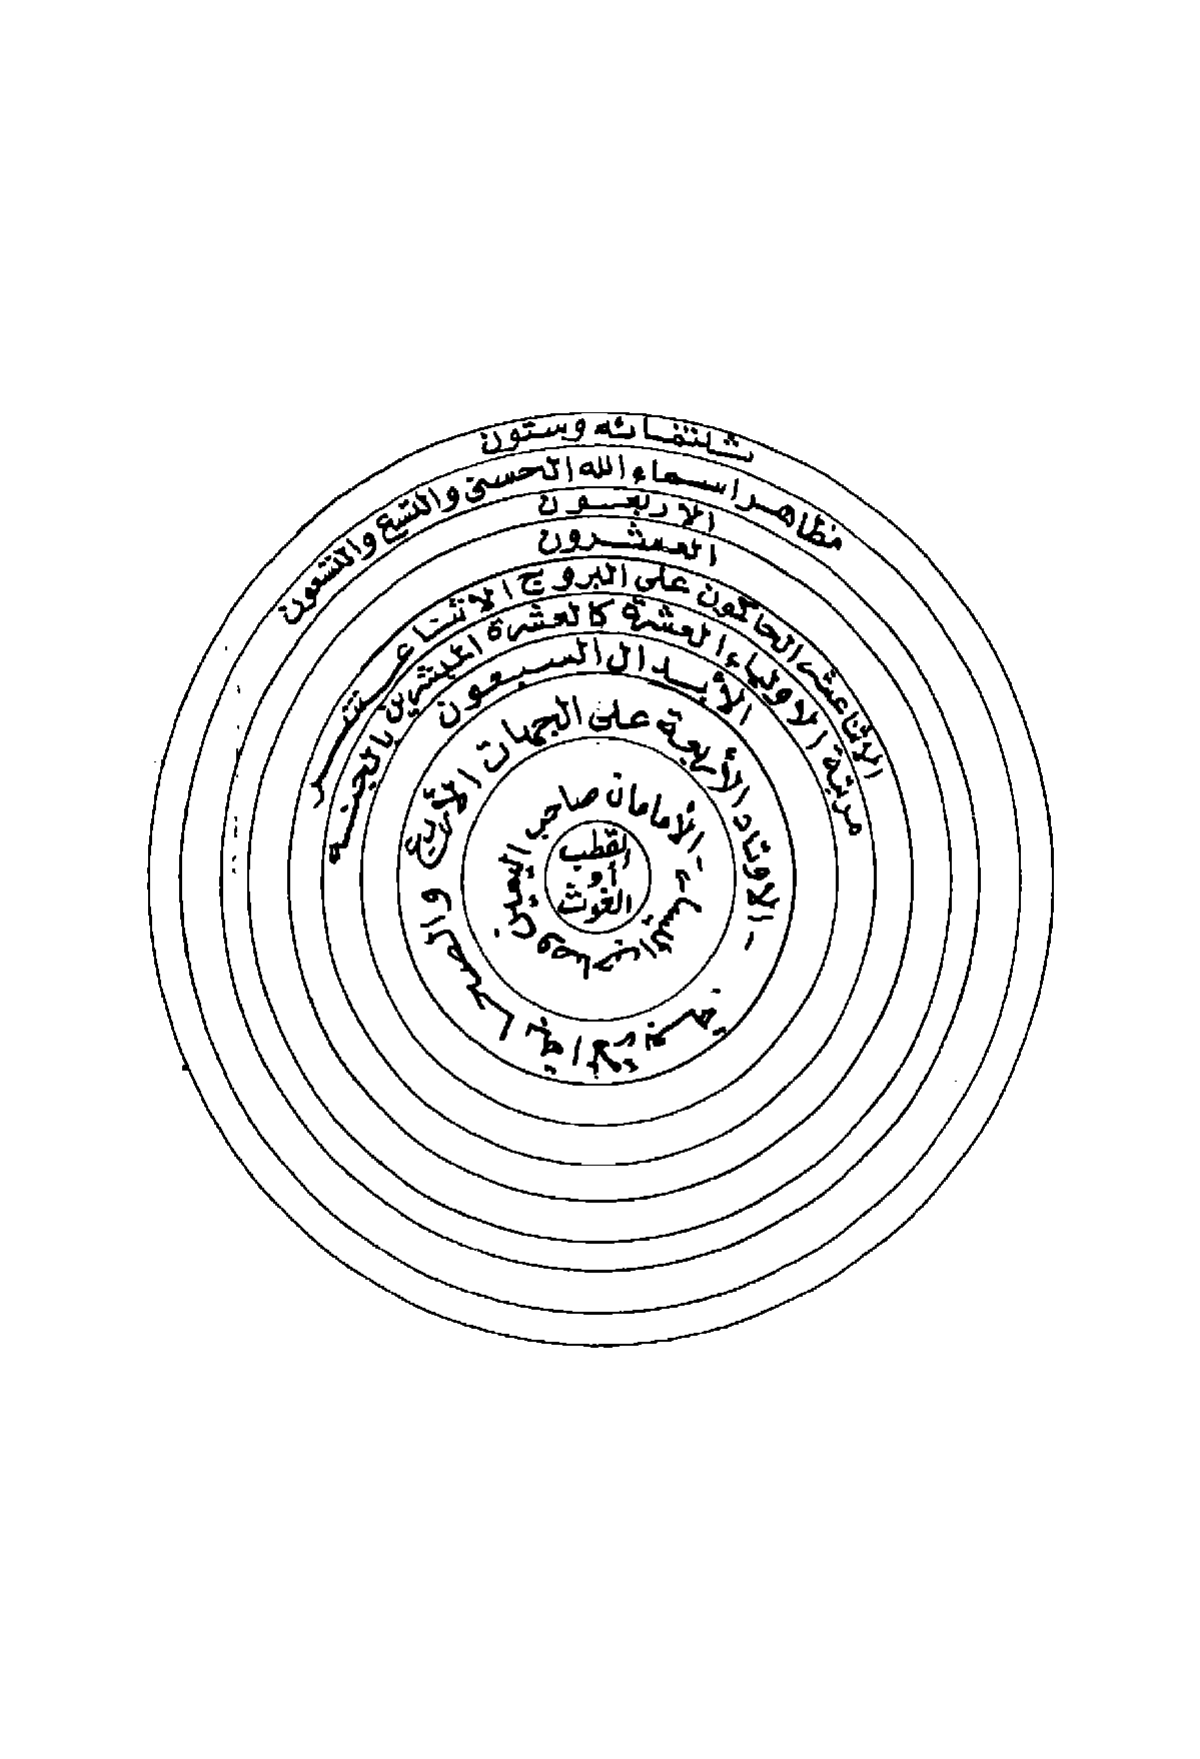 ثلثمائه وستون
مظاهر اسماء الله الحسنى والتسع والتسعون
الاربعون
العشرون
الاثنا عشر الحاكمون على البروج الاثنا عشر
مرتبة الاولياء العشرة كالعشرة المبشرين بالجنه
الأبدال السبعون
- الاوتاد الأربعة على الجهات الأربع والصحابة الأربعة.
- الأمامان صاحب اليمين وصاحب اليسار -
القطب
أو
الغوث